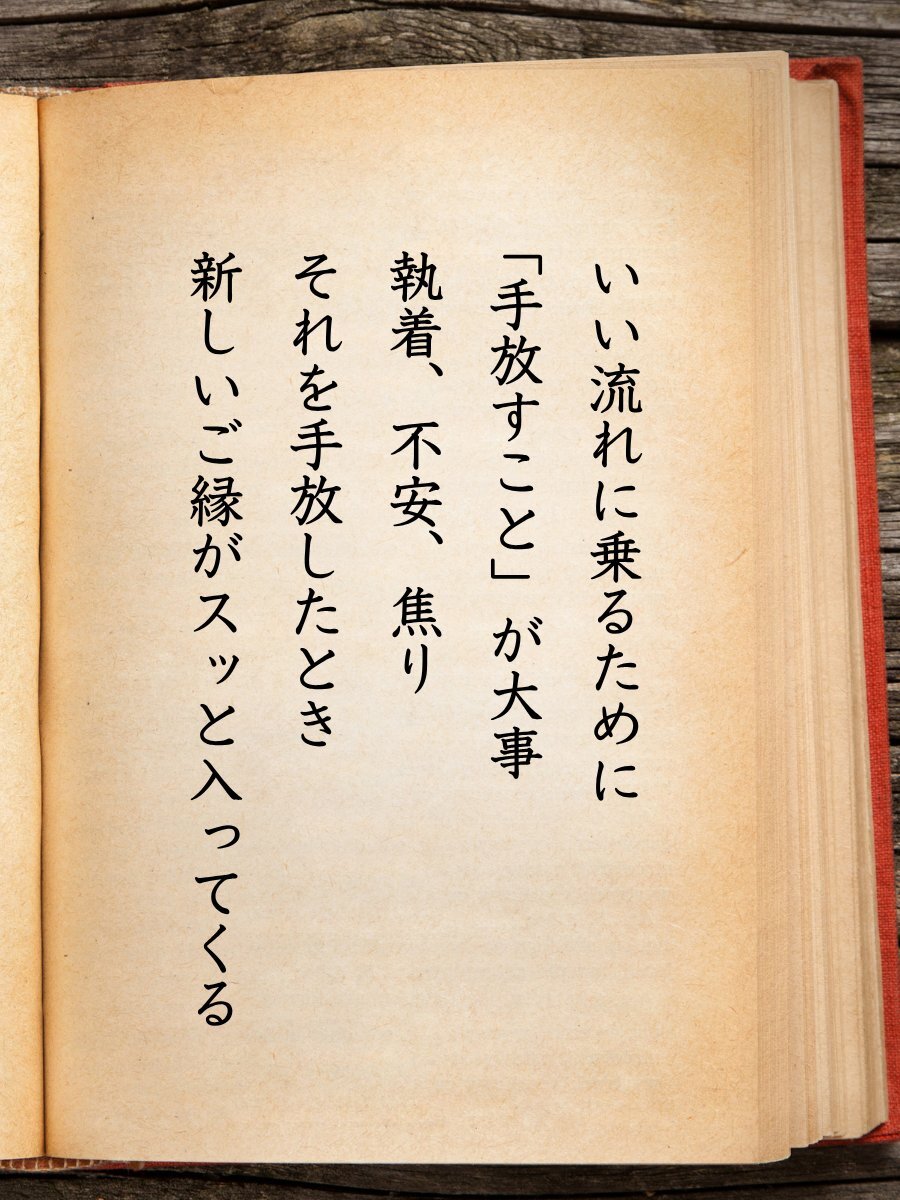 いい流れに乗るために
「手放すこと」が大事
執着、不安、焦り
それを手放したとき
新しいご縁がスッと入ってくる